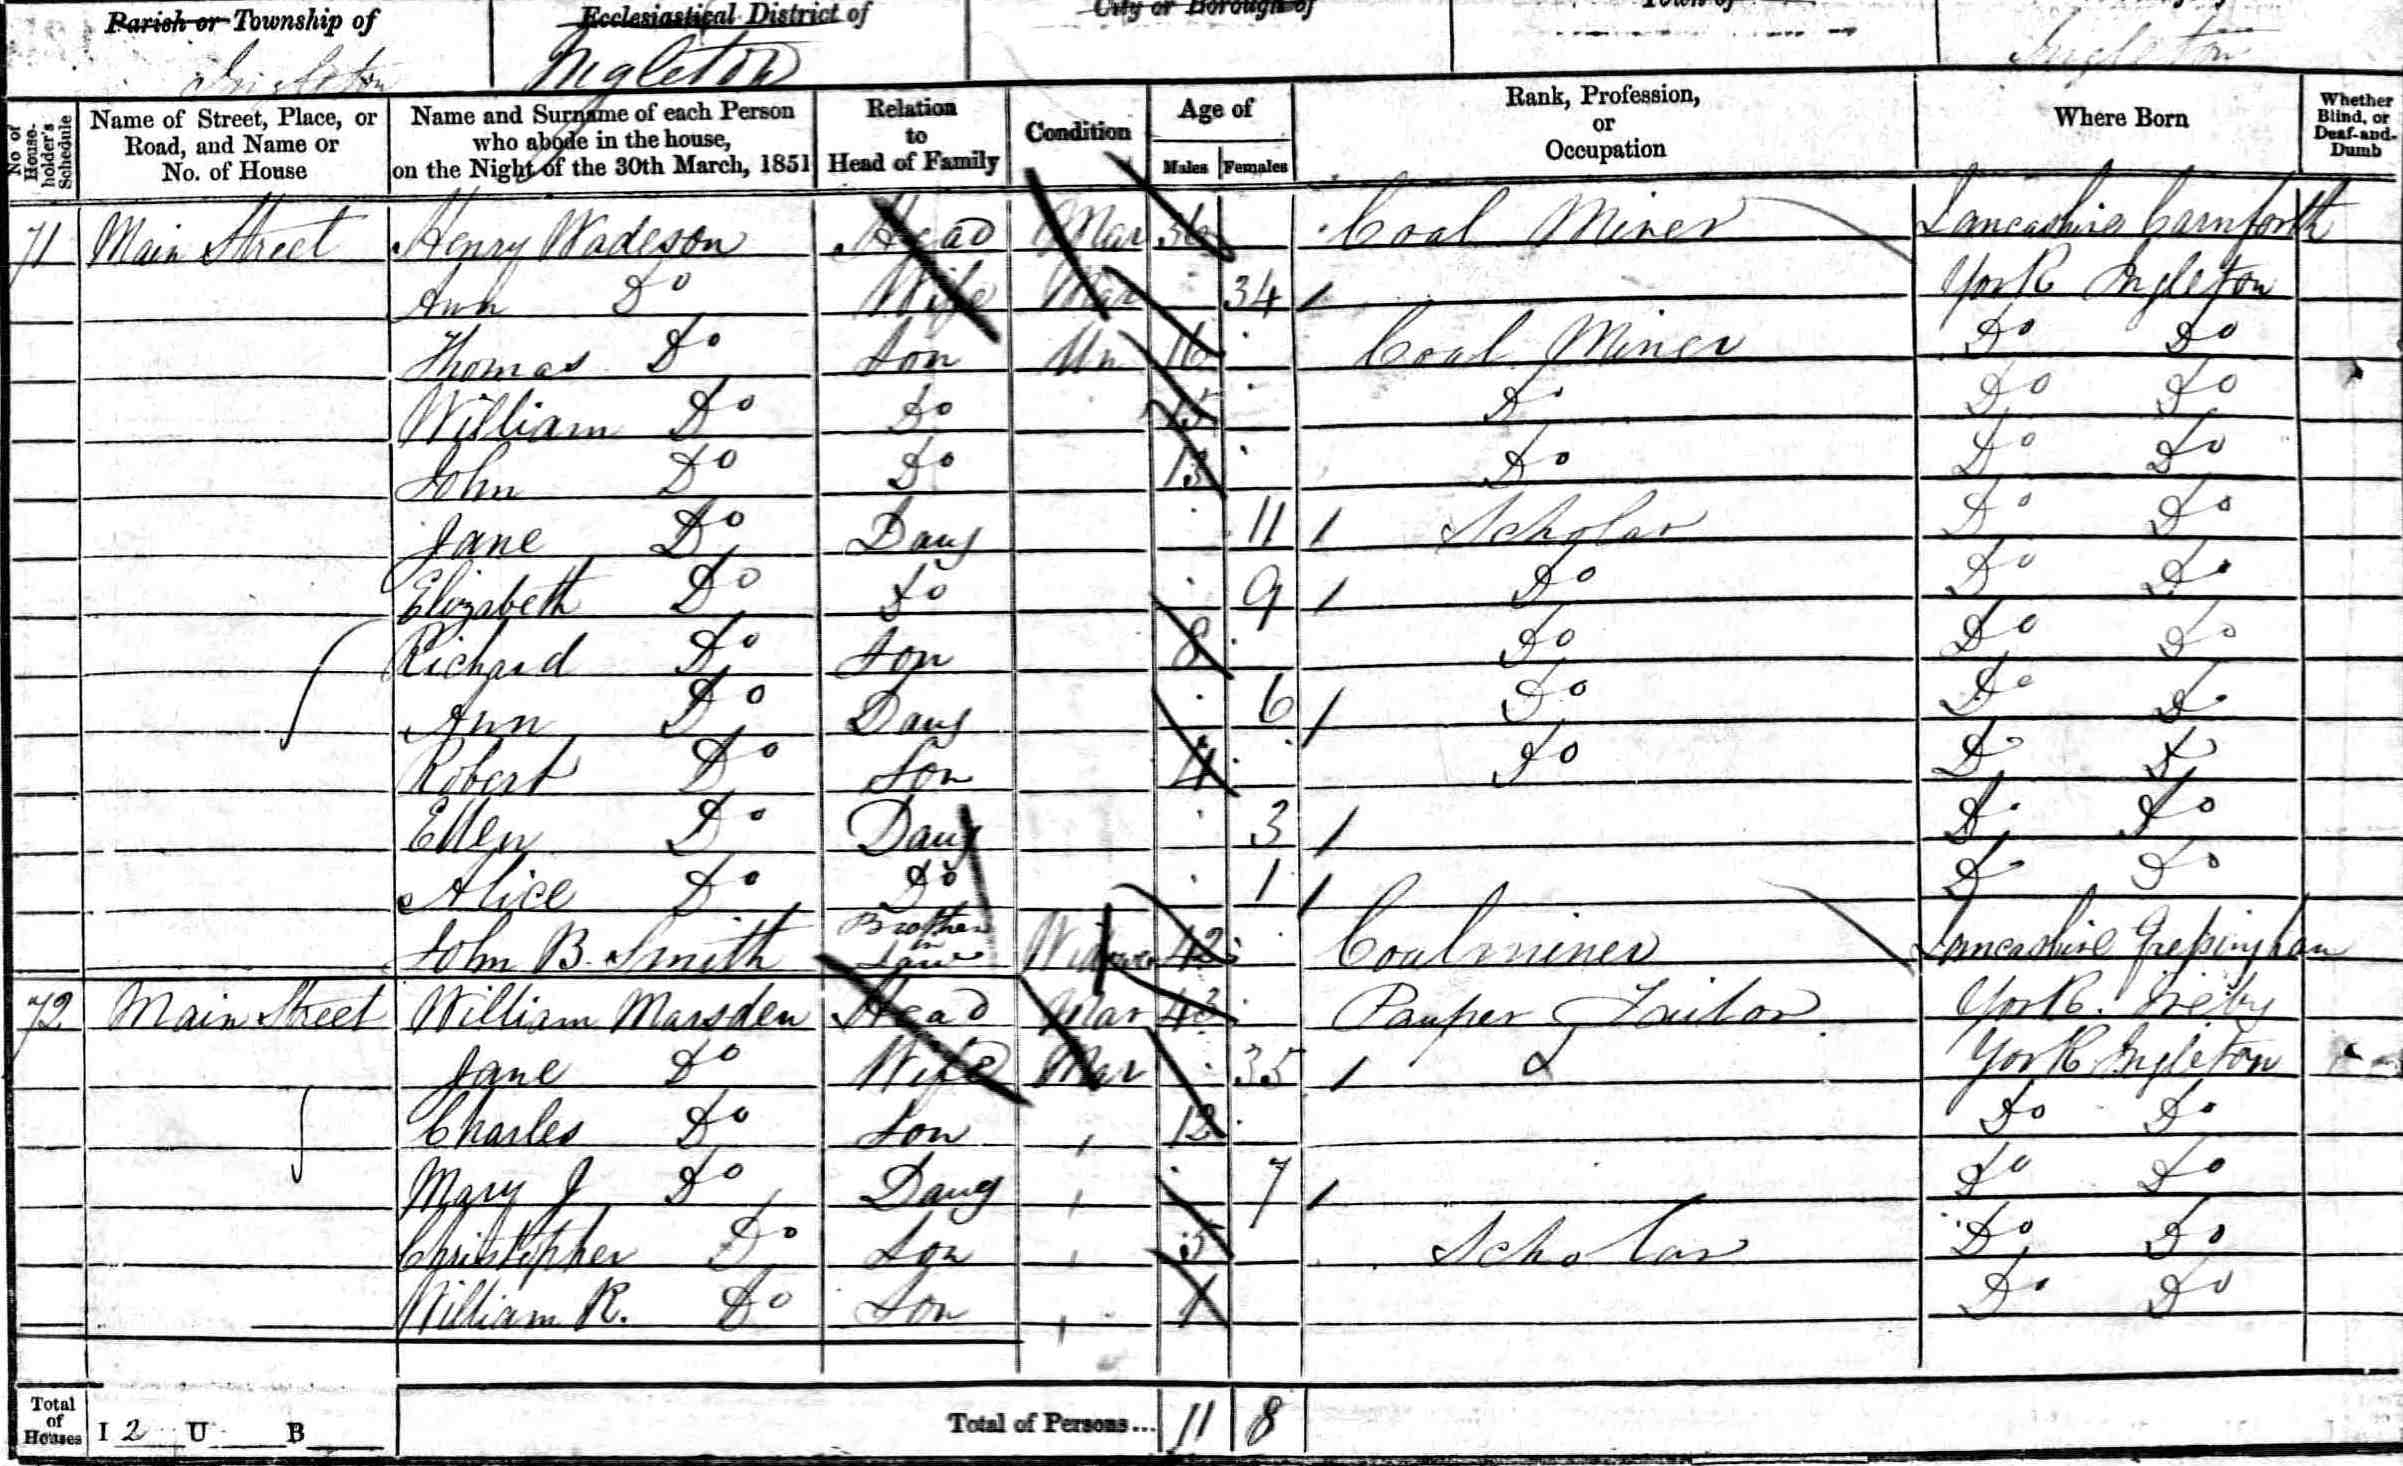 Parish or Township of Ecclesiastical District of City or Borough of Town of
Ingleton Ingleton Ingleton
No of House-holder's Schedule
Name of Street, Place, or Road, and Name or No. of House
Name and Surname of each Person who abode in the house, on the Night of the 30th March, 1851
Relation to Head of Family
Condition
Age of
Males Females
Rank, Profession, or Occupation
Where Born
Whether Blind, or Deaf-and-Dumb
71 Main Street Henry Wadeson Head Mar 36 Coal Miner Lancashire Carnforth
Ann Do Wife Mar 34 York Ingleton
Thomas Do Son Un 16 Coal Miner Do Do
William Do Do 15 Do Do Do
John Do Do 13 Do Do Do
Jane Do Daug 11 Scholar Do Do
Elizabeth Do Do 9 Do Do Do
Richard Do Son 8 Do Do Do
Ann Do Daug 6 Do Do Do
Robert Do Son 4 Do Do Do
Ellen Do Daug 3 Do Do
Alice Do Do 1 Do Do
John B. Smith Brother in Law Widower 42 Coalminer Lancashire Gressingham
72 Main Street William Marsden Head Mar 43 Pauper Tailor York Ireby
Jane Do Wife Mar 35 York Ingleton
Charles Do Son 12 Do Do
Mary J Do Daug 7 Do Do
Christopher Do Son 5 Scholar Do Do
William R. Do Son 1 Do Do
Total of Houses I 2 U B Total of Persons... 11 8